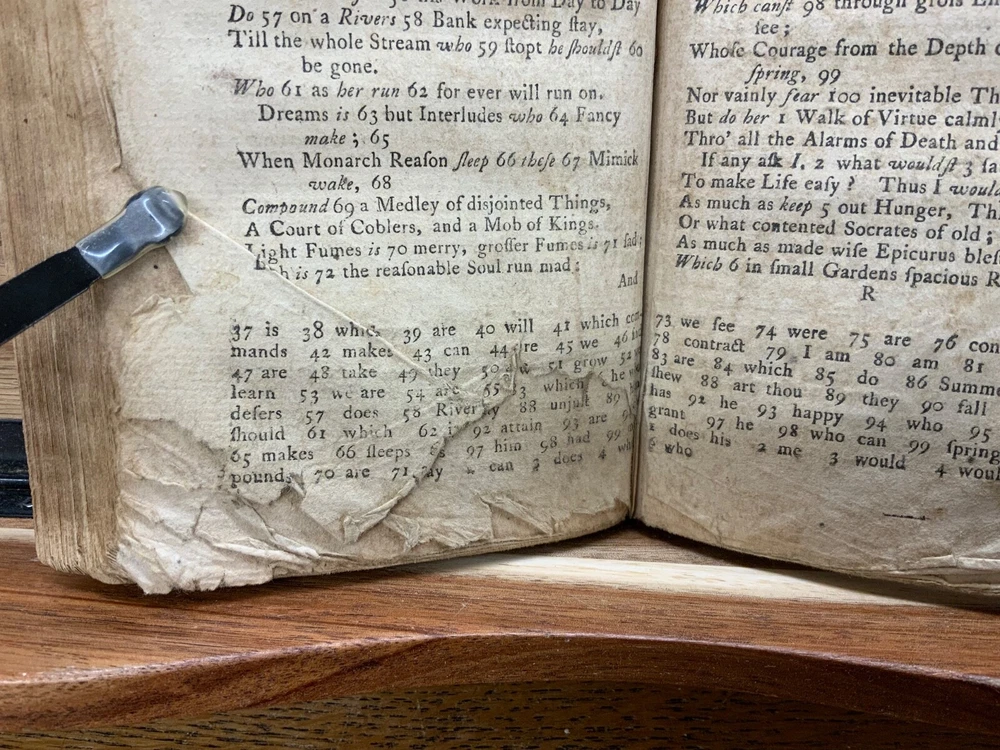 Work from Day to Day
Do 57 on a Rivers 58 Bank expecting ſtay,
Till the whole Stream who 59 ſtopt he ſhouldſt 60
be gone.
Who 61 as her run 62 for ever will run on.
Dreams is 63 but Interludes who 64 Fancy
make ; 65
When Monarch Reaſon ſleep 66 theſe 67 Mimick
wake, 68
Compound 69 a Medley of disjointed Things,
A Court of Coblers, and a Mob of Kings.
Light Fumes is 70 merry, groſſer Fumes is 71 ſad;
is 72 the reaſonable Soul run mad ;
And
37 is 38 which 39 are 40 will 41 which
mands 42 makes 43 can 44 45 we 46
47 are 48 take 49 they 50 51 grow 52
learn 53 we are 54 are 55 which he
defers 57 does 58 River 88 unjuſt 89
ſhould 61 which 62 92 attain 93 are
65 makes 66 ſleeps 97 him 98 had 99
pounds 70 are 71 can 3 does 4
Which canſt 98 through groſs
ſee ;
Whoſe Courage from the Depth
ſpring, 99
Nor vainly fear 100 inevitable
But do her 1 Walk of Virtue
Thro' all the Alarms of Death and
If any aſk I, 2 what wouldſt 3
To make Life eaſy ? Thus I
As much as keep 5 out Hunger,
Or what contented Socrates of old ;
As much as made wiſe Epicurus
Which 6 in ſmall Gardens ſpacious
R
73 we ſee 74 were 75 are 76
78 contract 79 I am 80 am 81
83 are 84 which 85 do 86
ſhew 88 art thou 89 they 90 fall
has 92 he 93 happy 94 who 95
grant 97 he 98 who can 99 ſpring
1 does his 2 me 3 would 4
6 who